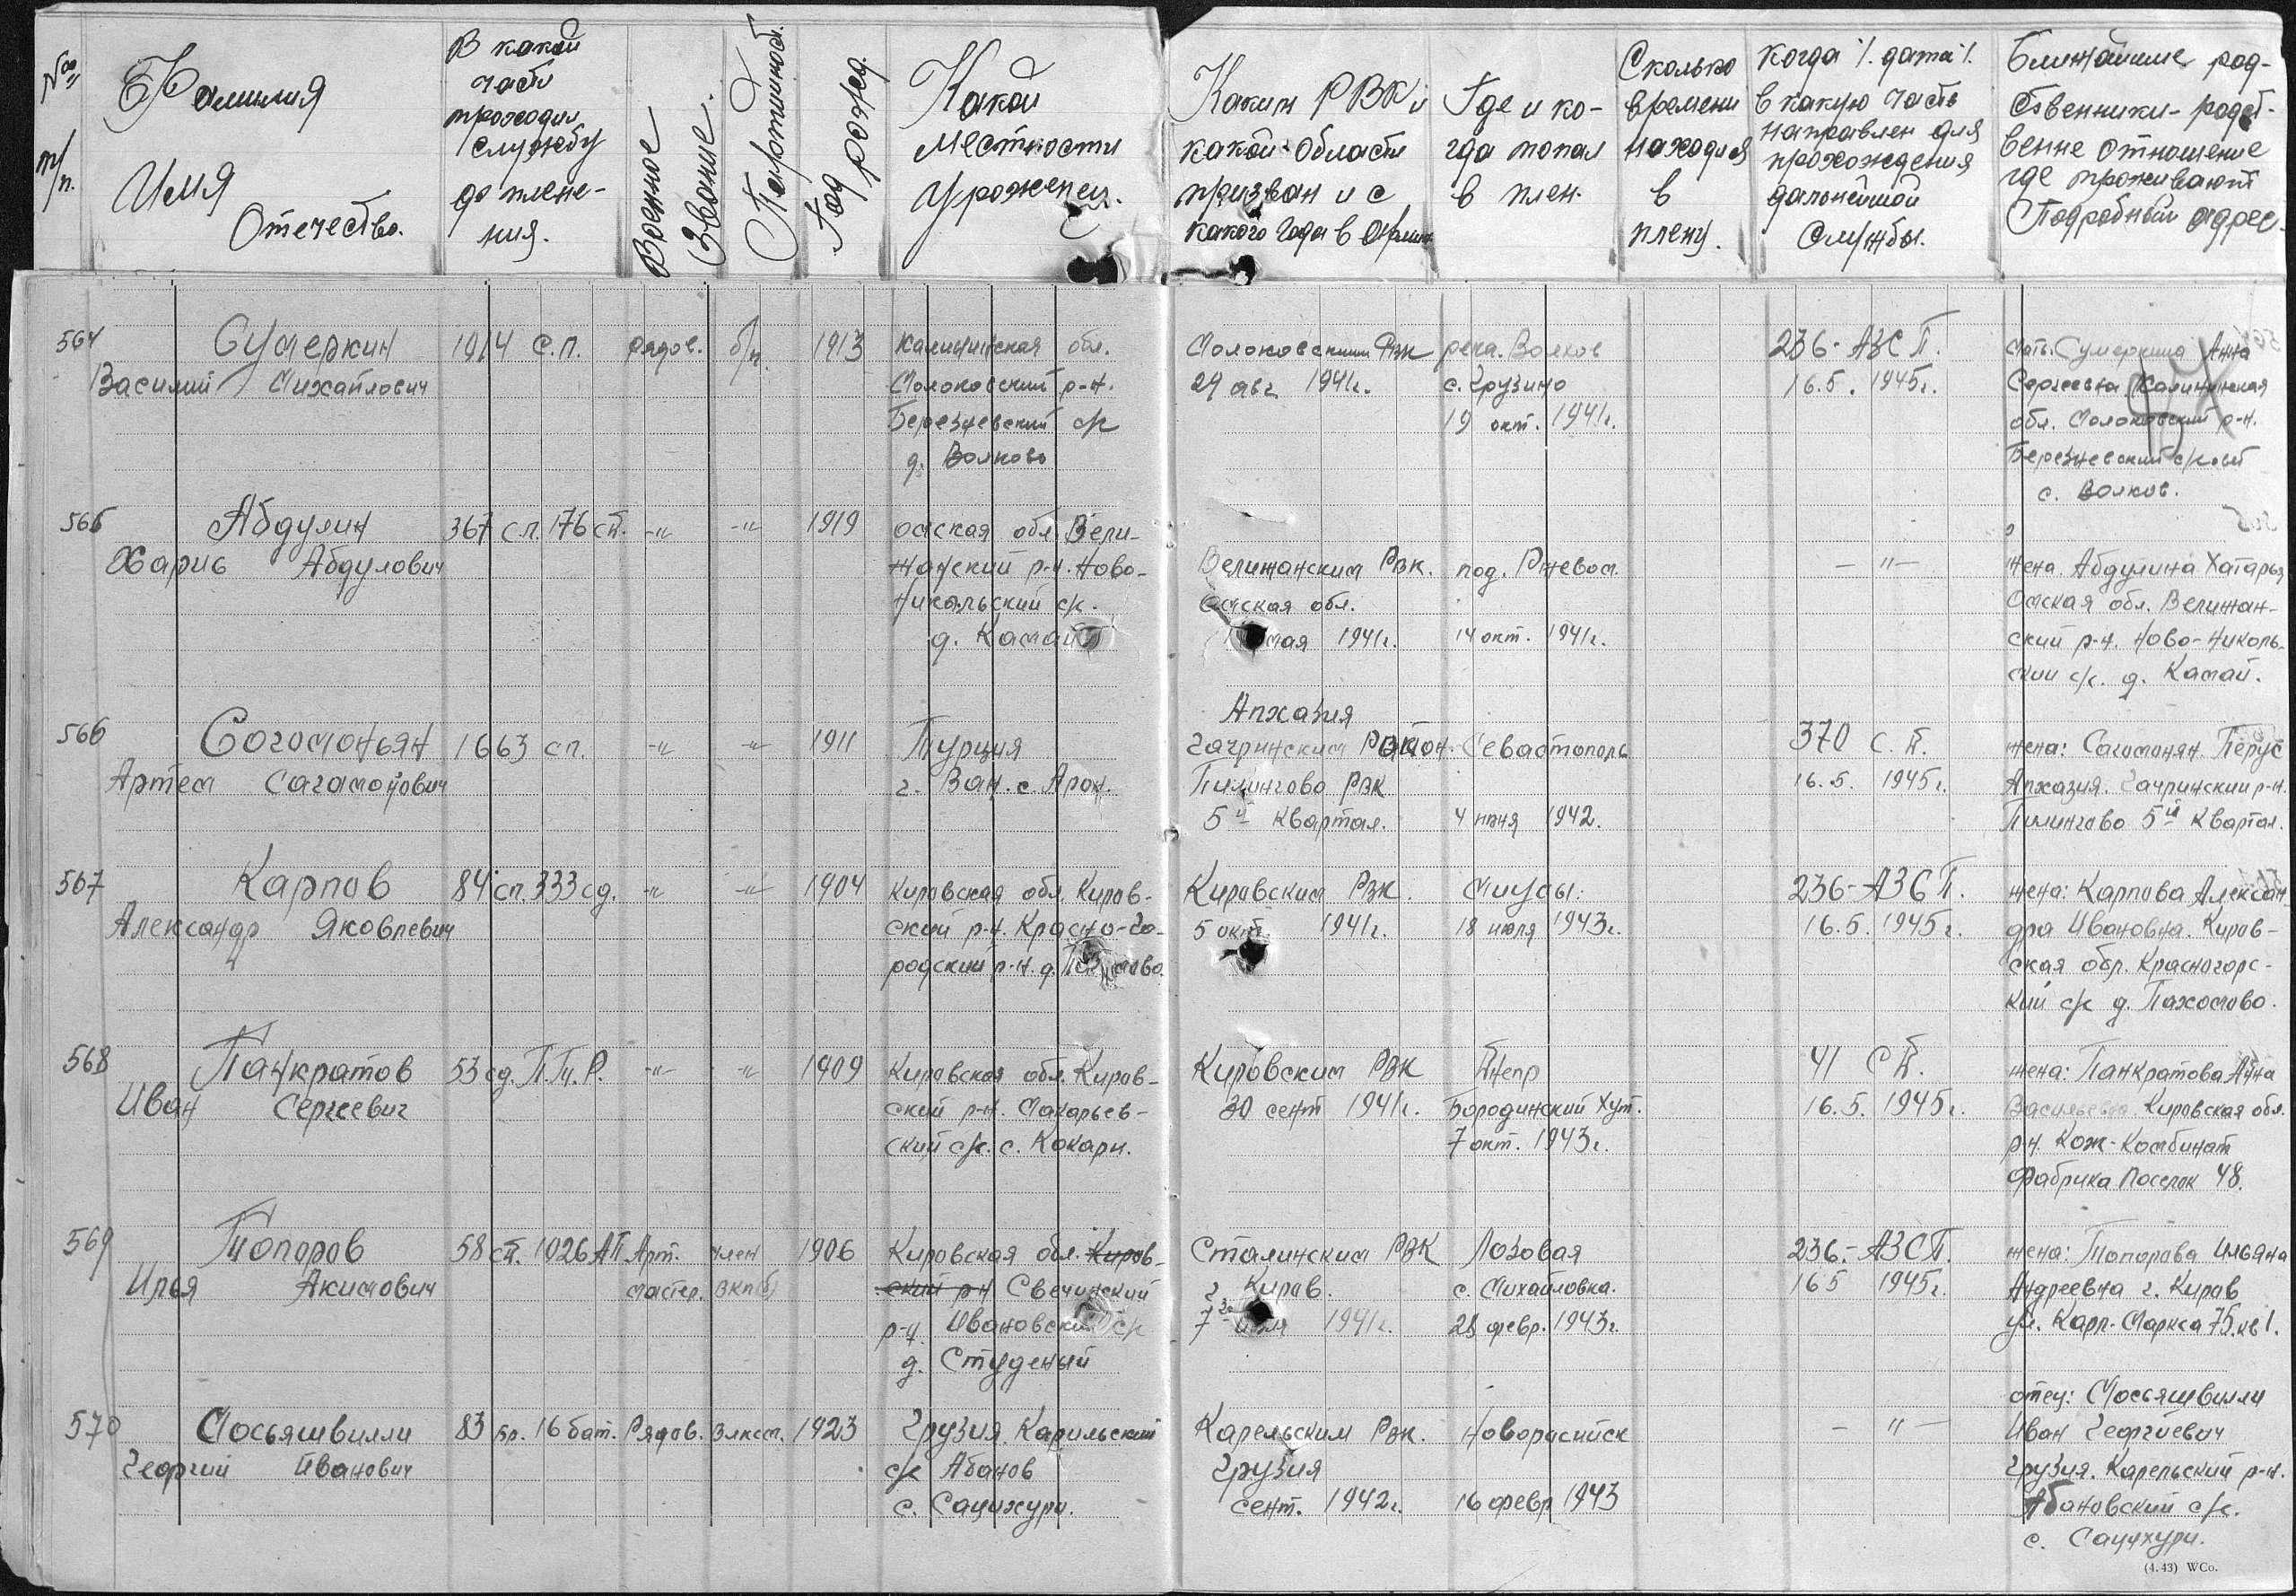 №№ п/п.
Фамилия Имя Отчество.
В какой части проходил службу до плене-ния.
Военное Звание.
Партийность.
Год рожд.
Какой местности уроженец.
Каким РВК и какой области призван и с какого года в армии
Где и ко-гда попал в плен.
Сколько времени находился в плену.
Когда /дата/ в какую часть направлен для прохождения дальнейшей службы.
Ближайшие род-ственники-родст-венне отношение где проживают Подробный адрес.
564 Сумеркин 1914 с.п. рядов. б/п. 1913 Калининская обл. Молоковским РВК река. Волхов 236-АЗСП. мать. Сумеркина Анна
Василий Михайлович Молоковский р-н. 29 авг. 1941г. с. Грузино 16.5. 1945г. Сергеевна Калининская
Березневский с/с 19 окт. 1941г. обл. Молоковский р-н.
д. Волково Березневский с/с
с. Волков.
565 Абдулин 367 сп. 176 сд. -"- -"- 1919 омская обл. Вели-
Харис Абдулович жанский р-н. Ново- Велижанским Рвк. под. Ржевом. — " — жена. Абдулина
никольский с/с. Омская обл. Омская обл. Велижан-
д. Камай мая 1941г. 14 окт. 1941г. ский р-н. Ново-Николь-
ский с/с. д. Камай.
Апхазия
566 Согомоньян 1663 сп. -"- -"- 1911 Турция Гагринским Севастополь 370 с.д. жена: Сагомонян. Перус
Артем Сагамонович г. Ван. с. Арон. Пиленгово РВК 16.5. 1945г. Апхазия. Гагринский р-н.
5й Квартал. 4 июня 1942. Пиленгово 5й Квартал.
567 Карпов 84 сп. 333 сд. -"- -"- 1904 Кировская обл. Киров- Кировским Рвк. Миусы. 236-АЗСП. жена: Карпова Алексан
Александр Яковлевич ский р-н. Красно-го- 5 окт. 1941г. 18 июля 1943г. 16.5. 1945г. дра Ивановна. Киров-
родский р-н. д. ская обл. Красногорс-
кий с/с д. Пахомово.
568 Панкратов 53 сд. П.П.Р. -"- -"- 1909 Кировская обл. Киров- Кировским РВК Днепр 41 СД. жена: Панкратова Анна
Иван Сергеевич ский р-н. Макарьев- 30 сент 1941г. Бородинский Хут. 16.5. 1945г. Васильевна Кировская обл.
ский с/с. с. Кокари. 7 окт. 1943г. р-н. Кож-Комбинат
Фабрика Поселок 48.
569 Топоров 58 сд. 1026 АП Арт. член 1906 Кировская обл. Киров- Сталинским РВК Лозовая 236.-АЗСП. жена: Топорова Ульяна
Илья Акимович мастер. ВКП(б) ский р-н Свечинский г. Киров. с. Михайловка. 16 5 1945г. Андреевна г. Киров
р-н. Ивановский с/с 7го 1941г. 28 февр. 1943г. ул. Карл-Маркса 75.кв1.
д. Студеный
отец: Мосьяшвилли
570 Мосьяшвилли 83 бр. 16 бат. Рядов. Влксм. 1923 Грузия. Карильский Карельским Рвк. Новорасийск — " — Иван Георгиевич
Георгий Иванович с/с Абанов Грузия Грузия. Карельский р-н.
с. Сацихури. сент. 1942г. 16 февр 1943 Абановский с/с.
с. Сацихури.
(4.43) WCo.